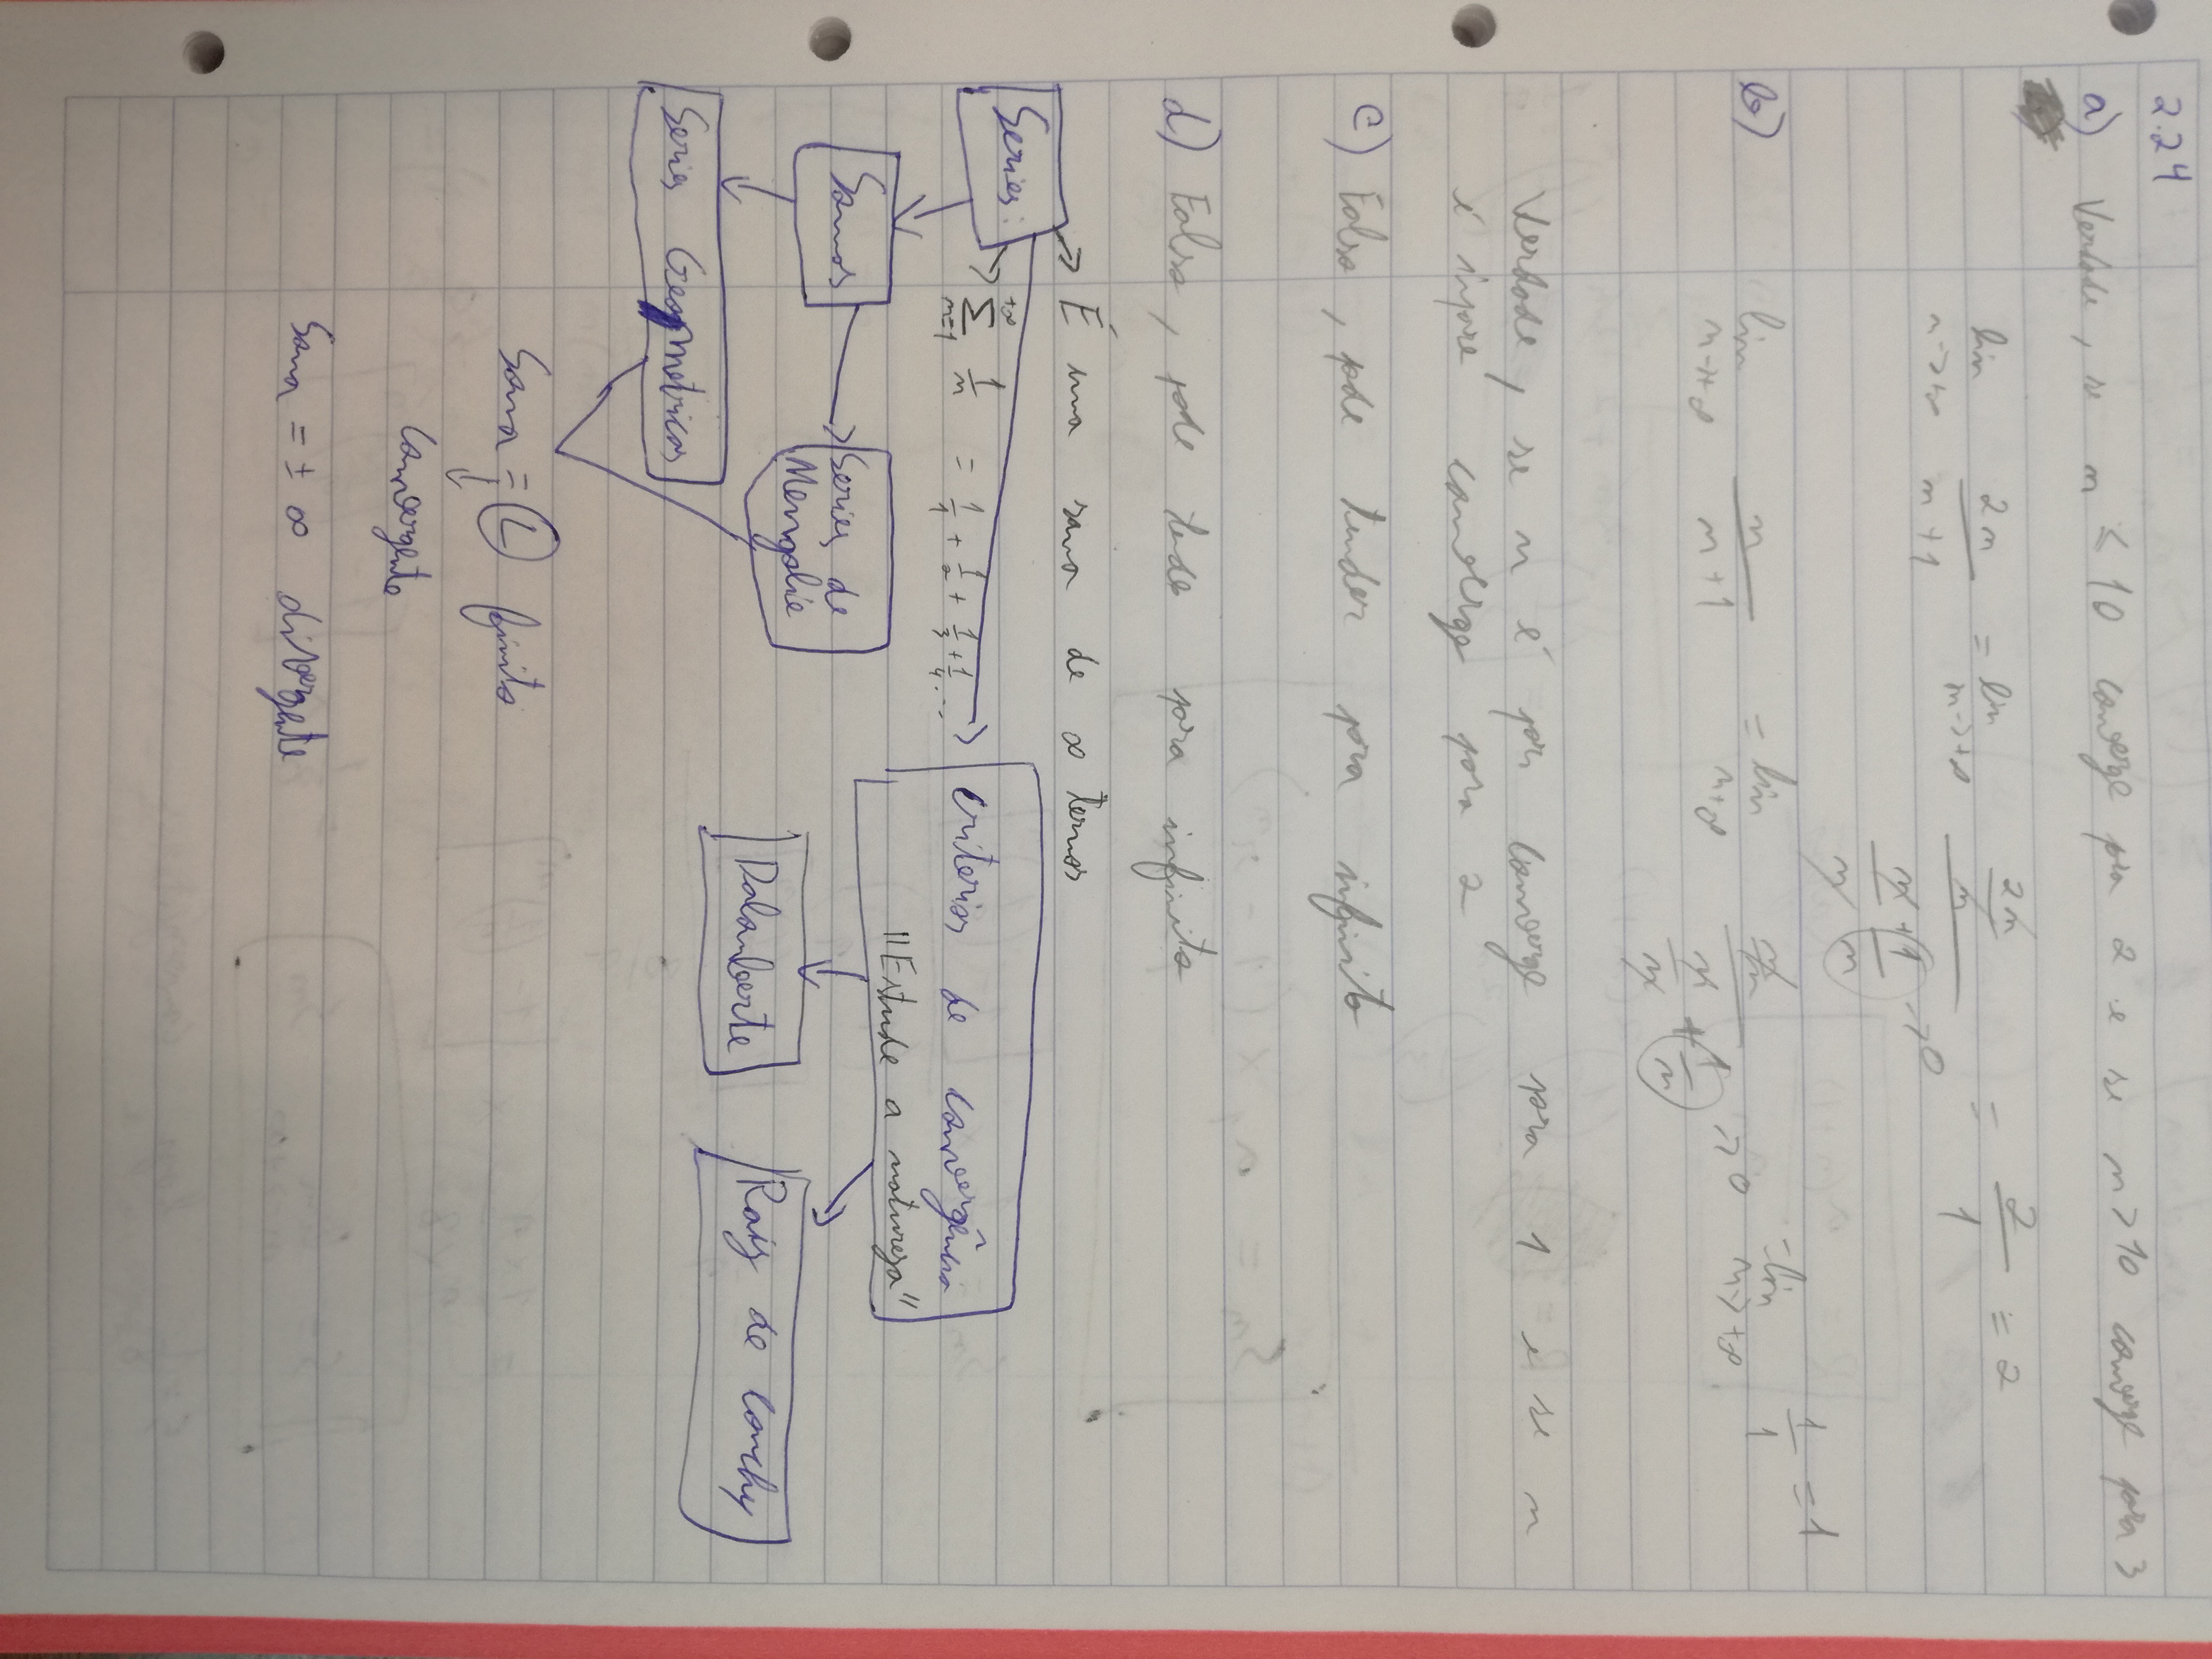 2.24
a) Verdade, se n ≤ 10 converge pra 2 e se n > 10 converge para 3
lim n->+∞ 2n/(n+1) = lim n->+∞ (2n/n)/(n/n + 1/n) ->0 = 2/1 = 2
b) lim n->+∞ n/(n+1) = lim n+∞ (n/n)/(n/n + 1/n) ->0 = lim n->+∞ 1/1 = 1
Verdade, se n é par converge para 1 e se n
é impar converge para 2
c) Falso, pode tender para infinito
d) Falso, pode tende para infinito
Series: -> É uma soma de ∞ termos
-> +∞ Σ n=1 1/n = 1/1 + 1/2 + 1/3 + 1/4...
Criterios de convergência
"Estude a natureza"
Somas
Series de
Mengolie
Dalamberte
Raiz de Cauchy
Series Geometricas
Soma = L finito
Convergente
Soma = ± ∞ divergente